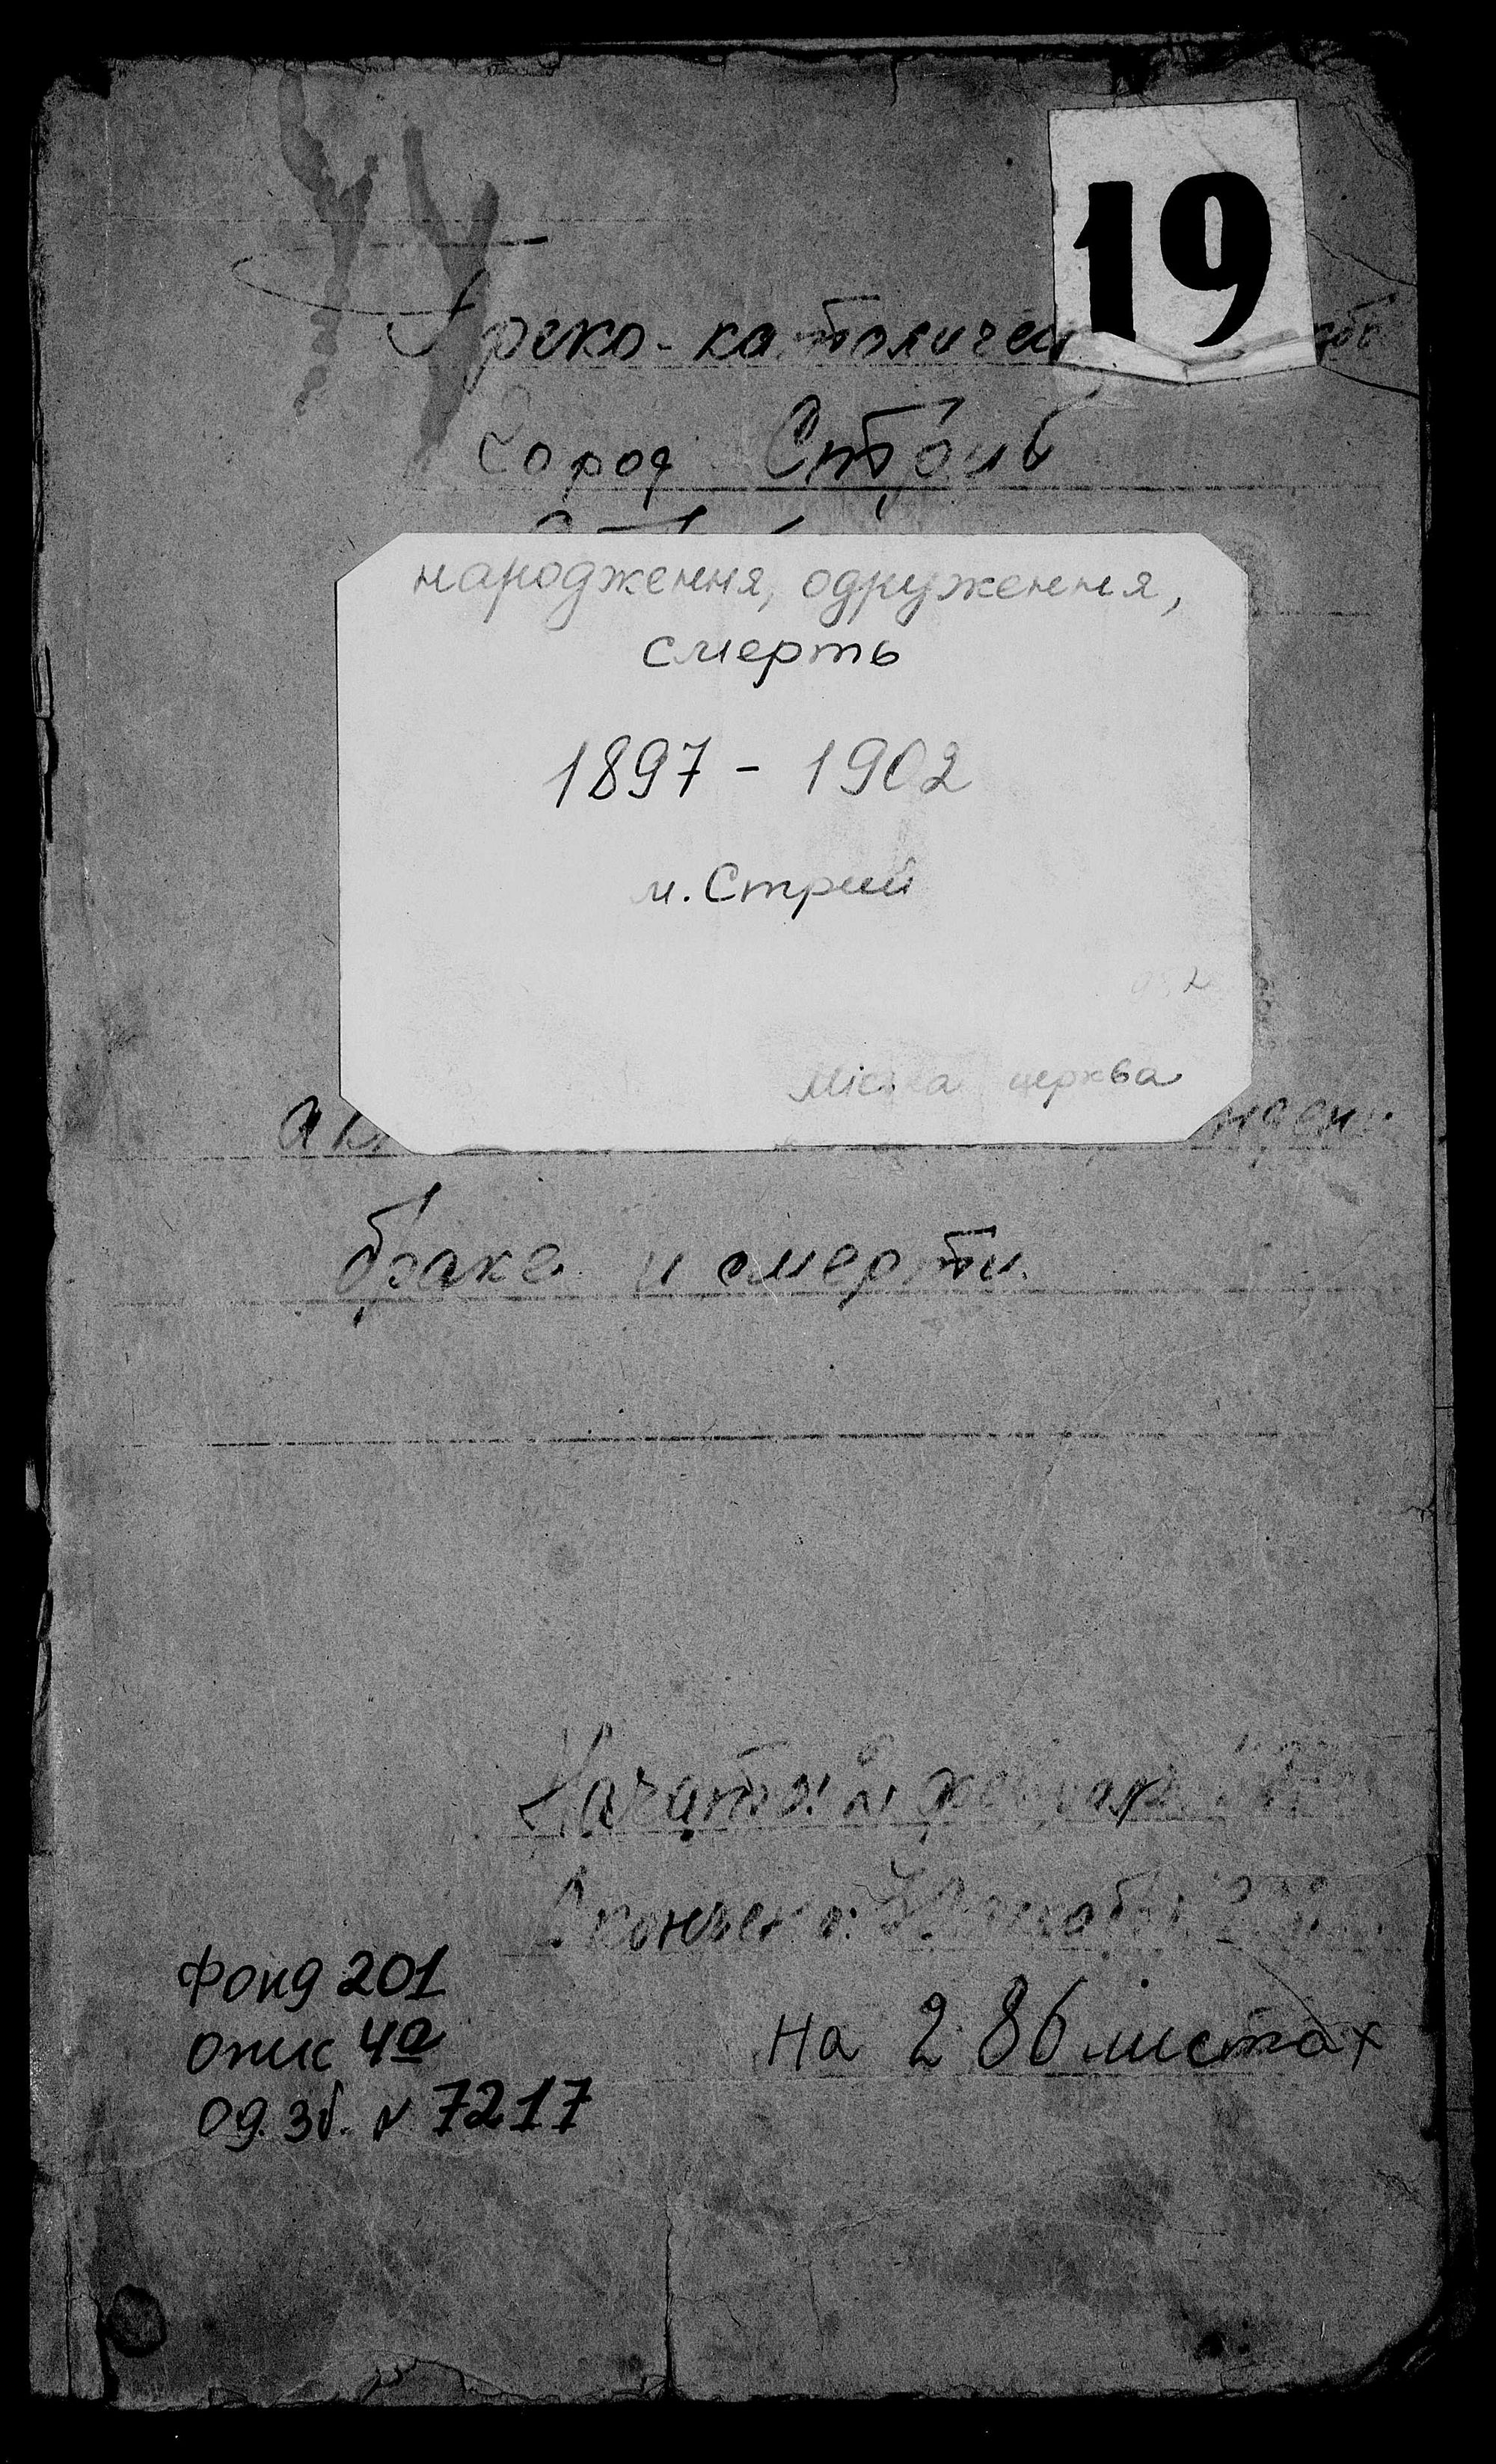 19
Греко-католичес
Город Стрий
народження, одруження,
смерть
1897 - 1902
м. Стрий
Міська церква
браке и смерти
Начато:
Окончено:
на 286 листах
Фонд 201
опис 4а
од. зб. № 7217